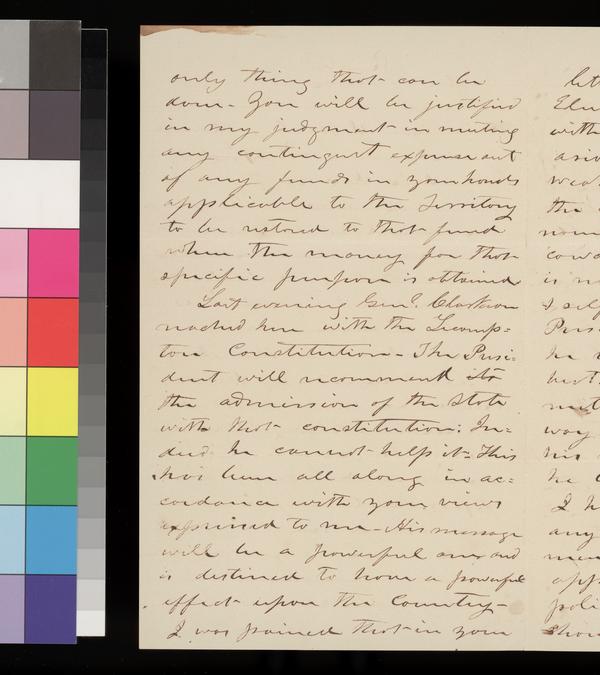 only thing that can be
done. You will be justified
in my judgment in meeting
any contingent expense out
of any funds in your hands
applicable to the Territory
to be restored to that fund
when the money for that
specific purpose is obtained
Last evening Genl. Clarkson
reached here with the Lecomp=
ton Constitution - The Presi=
dent will recommend its
the admission of the State
with that constitution: In=
deed he cannot help it - This
has been all along in ac=
cordance with your views
expressed to me - His message
will be a powerful one and
is destined to have a powerful
effect upon the Country -
I was pained that in your
let
Edu
with
asid
weak
the
nom
cowa
is n
& self
Presi
he
but
met
way
his
he
I h
any
men
app
poli
shou